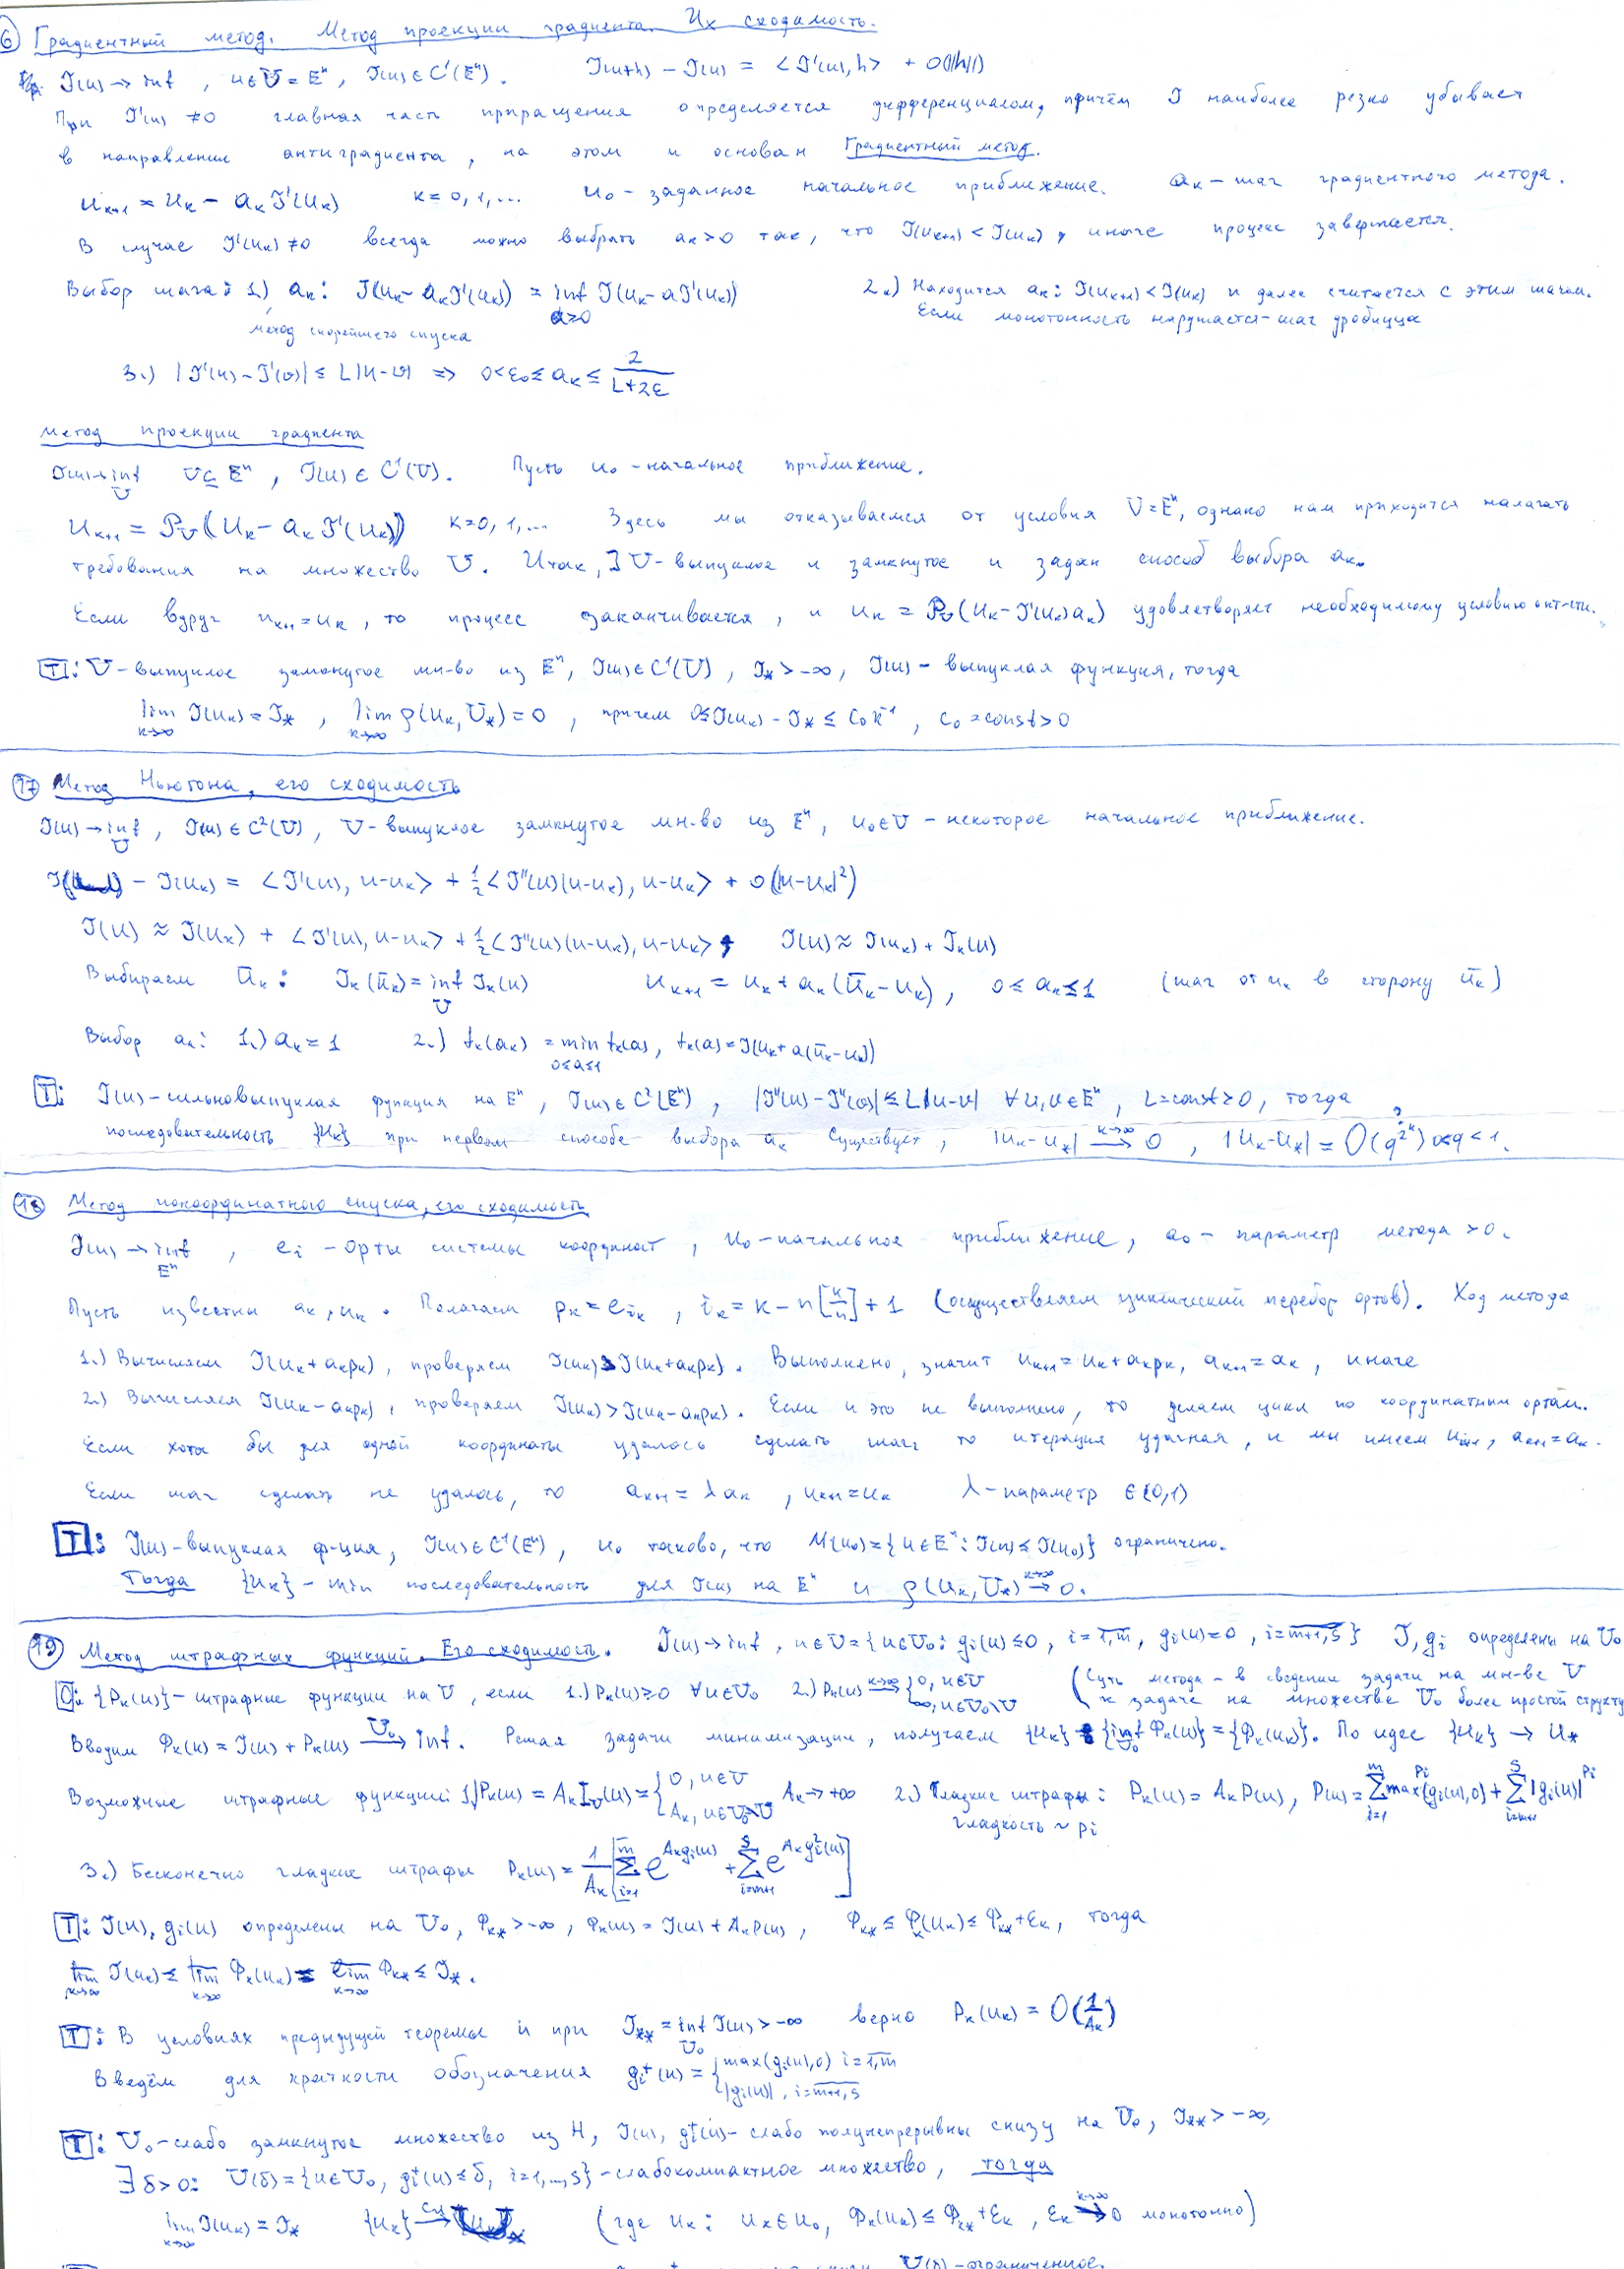 6) Градиентный метод. Метод проекции градиента. Их сходимость.
J(u) → inf, u∈U = Eⁿ, J(u)∈C¹(Eⁿ). J(u+h) − J(u) = <J'(u), h> + o(||h||)
При J'(u) ≠ 0 главная часть приращения определяется дифференциалом, причём J наиболее резко убывает
в направлении антиградиента, на этом и основан Градиентный метод.
u_{k+1} = u_k − a_k J'(u_k) k = 0, 1, ... u₀ – заданное начальное приближение. a_k – шаг градиентного метода.
В случае J'(u_k) ≠ 0 всегда можно выбрать a_k > 0 так, что J(u_{k+1}) < J(u_k), иначе процесс завершается.
Выбор шага: 1.) a_k: J(u_k − a_k J'(u_k)) = inf_{a≥0} J(u_k − a J'(u_k)) 2.) Находится a_k: J(u_{k+1}) < J(u_k) и далее считается с этим шагом.
метод скорейшего спуска Если монотонность нарушается – шаг дробицца
3.) |J'(u) − J'(v)| ≤ L|u − v| => 0 < ε₀ ≤ a_k ≤ 2/(L+2ε)
Метод проекции градиента
J(u) → inf_U U ⊆ Eⁿ, J(u) ∈ C¹(U). Пусть u₀ – начальное приближение.
u_{k+1} = P_U(u_k − a_k J'(u_k)) k = 0, 1, ... Здесь мы отказываемся от условия U = Eⁿ, однако нам приходится налагать
требования на множество U. Итак, ∃ U – выпуклое и замкнутое и задан способ выбора a_k.
Если вдруг u_{k+1} = u_k, то процесс заканчивается, и u_k = P_U(u_k − J'(u_k) a_k) удовлетворяет необходимому условию опт-сти.
[T]: U – выпуклое замкнутое мн-во из Eⁿ, J(u) ∈ C¹(U), J_* > −∞, J(u) – выпуклая функция, тогда
lim_{k→∞} J(u_k) = J_*, lim_{k→∞} ρ(u_k, U_*) = 0, причем 0 ≤ J(u_k) − J_* ≤ C₀ k⁻¹, C₀ = const > 0
17) Метод Ньютона, его сходимость
J(u) → inf_U, J(u) ∈ C²(U), U – выпуклое замкнутое мн-во из Eⁿ, u₀ ∈ U – некоторое начальное приближение.
− J(u_k) = <J'(u), u − u_k> + ½<J''(u)(u − u_k), u − u_k> + o(|u − u_k|²)
J(u) ≈ J(u_k) + <J'(u), u − u_k> + ½<J''(u)(u − u_k), u − u_k>, J(u) ≈ J(u_k) + J_k(u)
Выбираем ū_k: J_k(ū_k) = inf_U J_k(u) u_{k+1} = u_k + a_k(ū_k − u_k), 0 ≤ a_k ≤ 1 (шаг от u_k в сторону ū_k)
Выбор a_k: 1.) a_k = 1 2.) f_k(a_k) = min_{0≤a≤1} f_k(a), f_k(a) = J(u_k + a(ū_k − u_k))
[T]: J(u) – сильновыпуклая функция на Eⁿ, J(u) ∈ C²(Eⁿ), |J''(u) − J''(v)| ≤ L|u − v| ∀u, v ∈ Eⁿ, L = const ≥ 0, тогда
последовательность {u_k} при первом способе выбора a_k существует, |u_k − u_*| →^{k→∞} 0, |u_k − u_*| = O(q^{2^k}) 0<q<1.
18) Метод покоординатного спуска, его сходимость
J(u) → inf_{Eⁿ}, e_i – орты системы координат, u₀ – начальное приближение, a₀ – параметр метода > 0.
Пусть известны a_k, u_k. Полагаем p_k = e_{i_k}, i_k = k − n[k/n] + 1 (осуществляем циклический перебор ортов). Ход метода
1.) Вычисляем J(u_k + a_k p_k), проверяем J(u_k) > J(u_k + a_k p_k). Выполнено, значит u_{k+1} = u_k + a_k p_k, a_{k+1} = a_k, иначе
2.) Вычисляем J(u_k − a_k p_k), проверяем J(u_k) > J(u_k − a_k p_k). Если и это не выполнено, то делаем цикл по координатным ортам.
Если хотя бы для одной координаты удалось сделать шаг, то итерация удачная, и мы имеем u_{k+1}, a_{k+1} = a_k.
Если шаг сделать не удалось, то a_{k+1} = λ a_k, u_{k+1} = u_k λ – параметр ∈ (0,1)
[T]: J(u) – выпуклая ф-ция, J(u) ∈ C¹(Eⁿ), u₀ таково, что M(u₀) = {u ∈ Eⁿ: J(u) ≤ J(u₀)} ограничено.
Тогда {u_k} – min последовательность для J(u) на Eⁿ и ρ(u_k, U_*) →^{k→∞} 0.
19) Метод штрафных функций. Его сходимость. J(u) → inf, u ∈ U = {u ∈ U₀: g_i(u) ≤ 0, i = 1,m, g_i(u) = 0, i = m+1,s} J, g_i определены на U₀
[O]: {P_k(u)} – штрафные функции на U, если 1.) P_k(u) ≥ 0 ∀u ∈ U₀ 2.) P_k(u) →^{k→∞} {0, u∈U; ∞, u∈U₀\U (Суть метода – в сведении задачи на мн-ве U
к задаче на множестве U₀ более простой структу
Вводим Φ_k(u) = J(u) + P_k(u) →^{U₀} inf. Решая задачи минимизации, получаем {u_k} {inf_{U₀} Φ_k(u)} = {Φ_k(u_k)}. По идее {u_k} → u_*
Возможные штрафные функции: 1.) P_k(u) = A_k I_U(u) = {0, u∈U; A_k, u∈U₀\U A_k → +∞ 2.) Гладкие штрафы: P_k(u) = A_k P(u), P(u) = Σ_{i=1}^{m} max(g_i(u),0)^{p_i} + Σ_{i=m+1}^{s} |g_i(u)|^{p_i}
гладкость ~ p_i
3.) Бесконечно гладкие штрафы P_k(u) = 1/A_k [Σ_{i=1}^{m} e^{A_k g_i(u)} + Σ_{i=m+1}^{s} e^{A_k g_i²(u)}]
[T]: J(u), g_i(u) определены на U₀, Φ_{k*} > −∞, Φ_k(u) = J(u) + A_k P(u), Φ_{k*} ≤ Φ_k(u_k) ≤ Φ_{k*} + ε_k, тогда
lim_{k→∞} J(u_k) ≤ lim_{k→∞} Φ_k(u_k) = lim_{k→∞} Φ_{k*} ≤ J_*.
[T]: В условиях предыдущей теоремы и при J_{**} = inf_{U₀} J(u) > −∞ верно P_k(u_k) = O(1/A_k)
Введём для краткости обозначения g_i⁺(u) = {max(g_i(u),0) i = 1,m; |g_i(u)|, i = m+1,s
[T]: U₀ – слабо замкнутое множество из H, J(u), g_i⁺(u) – слабо полунепрерывны снизу на U₀, J_{**} > −∞,
∃ δ > 0: U(δ) = {u ∈ U₀, g_i⁺(u) ≤ δ, i = 1,...,s} – слабокомпактное множество, тогда
lim_{k→∞} J(u_k) = J_* {u_k} →^{сл} U_* (где u_k: u_k ∈ U₀, Φ_k(u_k) ≤ Φ_{k*} + ε_k, ε_k →^{k→∞} 0 монотонно)
U(δ) – ограниченное.